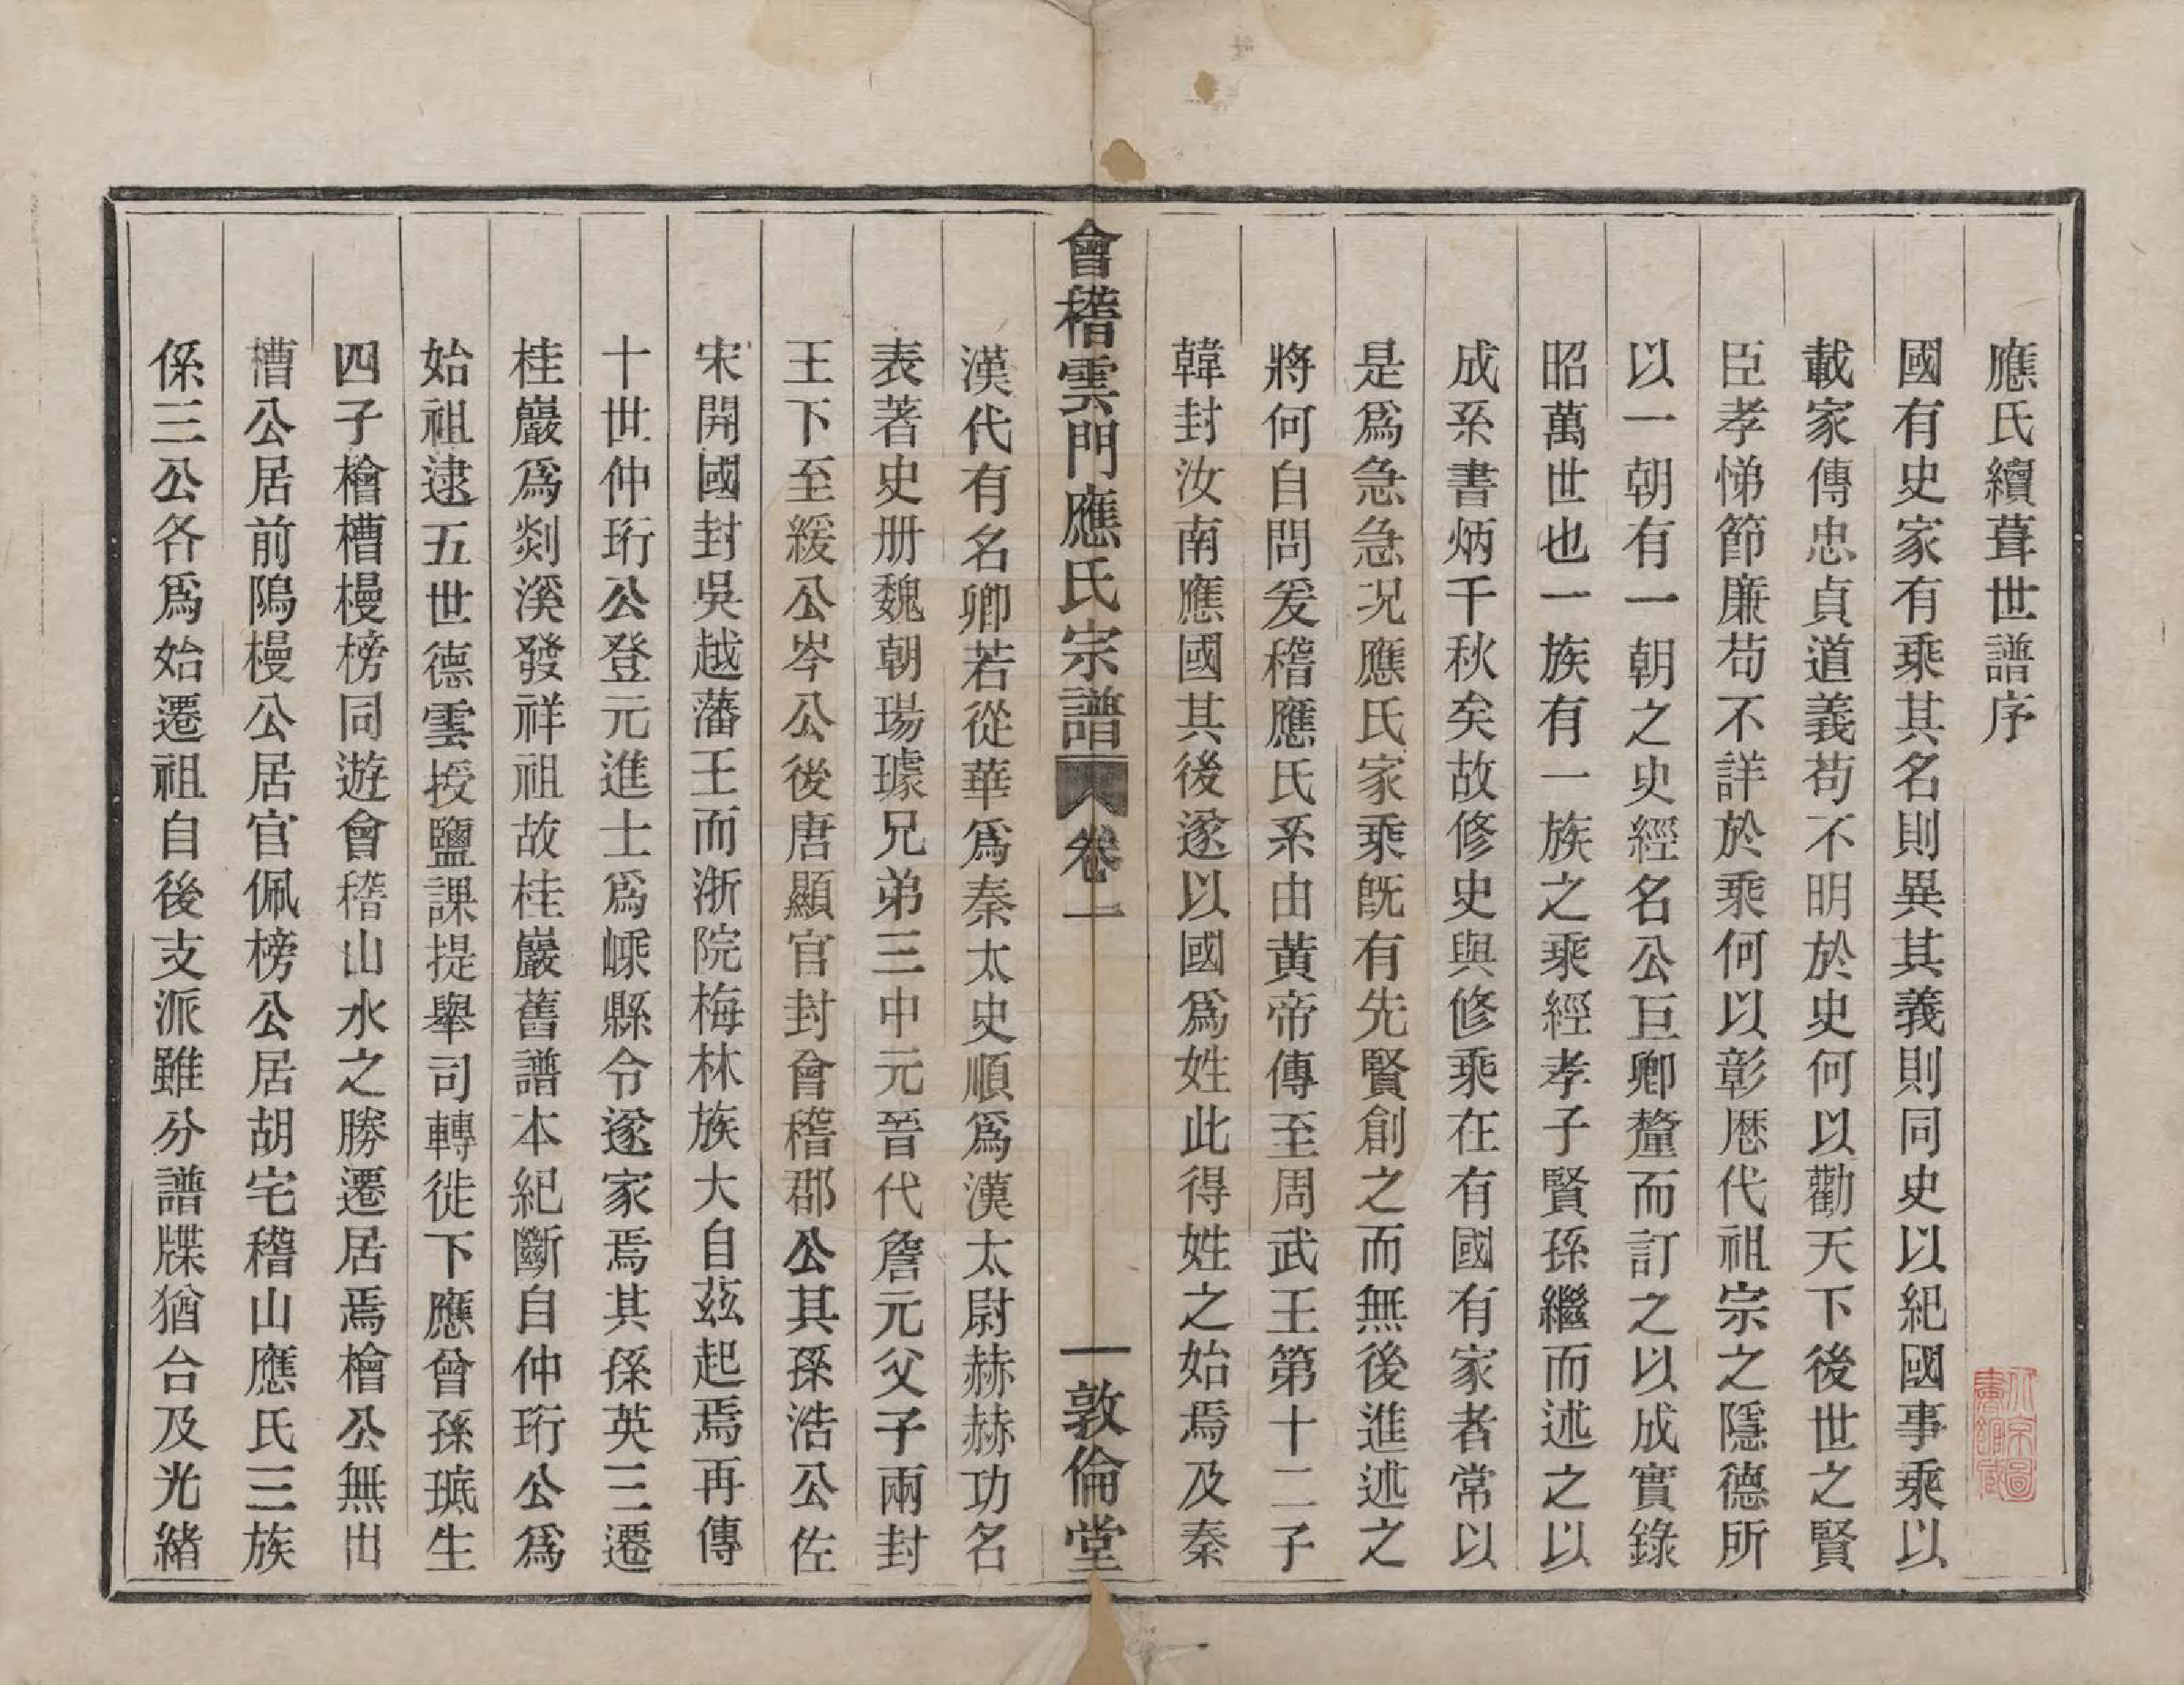 應氏續葺世譜序
國有史家有乘其名則異其義則同史以紀國事乘以
載家傳忠貞道義苟不明於史何以勸天下後世之賢
臣孝悌節廉苟不詳於乘何以彰歷代祖宗之隱德所
以一朝有一朝之史經名公巨卿釐而訂之以成實錄
昭萬世也一族有一族之乘經孝子賢孫繼而述之以
成系書炳千秋矣故修史與修乘在有國有家者常以
是爲急急況應氏家乘旣有先賢創之而無後進述之
將何自問爰稽應氏系由黄帝傳至周武王第十二子
韓封汝南應國其後遂以國爲姓此得姓之始焉及秦
會稽雲門應氏宗譜 卷一 一 敦倫堂
漢代有名卿若從華爲秦太史順爲漢太尉赫赫功名
表著史册魏朝瑒璩兄弟三中元晉代詹元父子兩封
王下至緩公岑公後唐顯官封會稽郡公其孫浩公佐
宋開國封吳越藩王而浙院梅林族大自茲起焉再傳
十世仲珩公登元進士爲嵊縣令遂家焉其孫英三遷
桂巖爲剡溪發祥祖故桂巖舊譜本紀斷自仲珩公爲
始祖逮五世德雲授鹽課提舉司轉徙下應曾孫珷生
四子檜槽榐榜同遊會稽山水之勝遷居焉檜公無出
槽公居前隖榐公居官佩榜公居胡宅稽山應氏三族
係三公各爲始遷祖自後支派雖分譜牒猶合及光緒